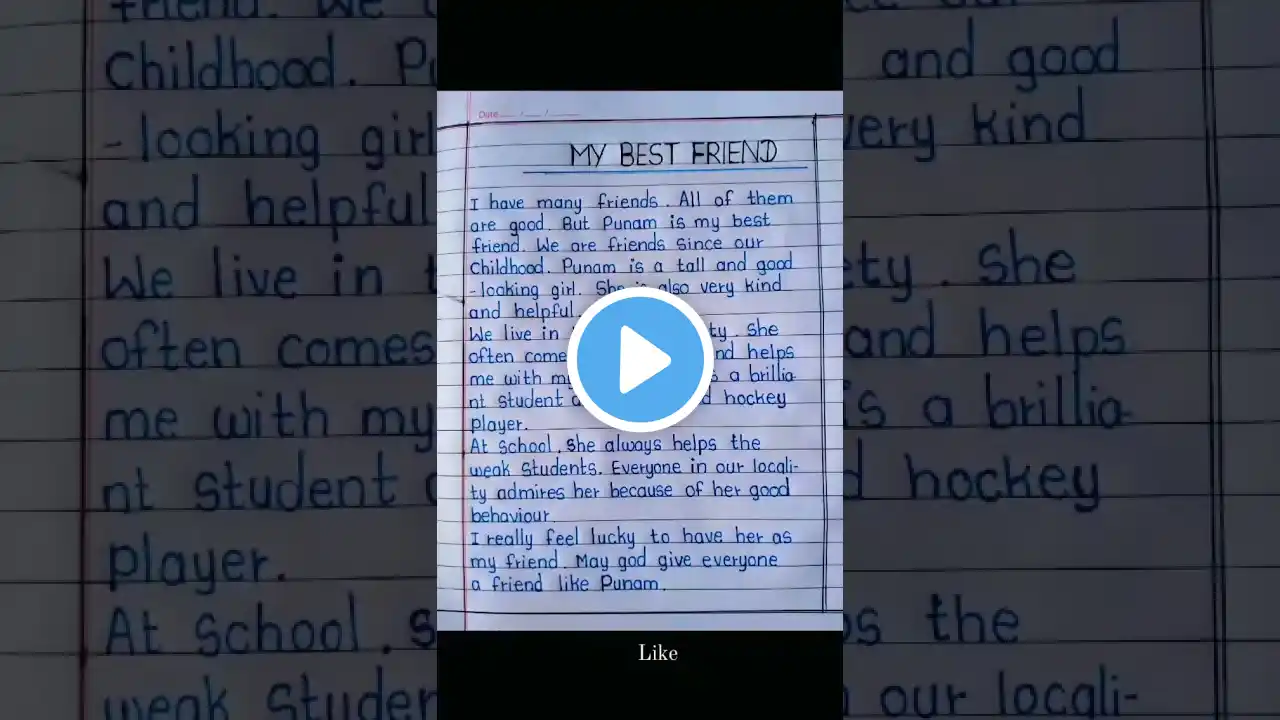 Date
MY BEST FRIEND
I have many friends. All of them
are good. But Punam is my best
friend. We are friends since our
Childhood. Punam is a tall and good
-looking girl. She is also very kind
and helpful.
We live in She
often comes and helps
me with my is a brillia-
nt student hockey
player.
At School, she always helps the
weak Students. Everyone in our locali-
ty admires her because of her good
behaviour.
I really feel lucky to have her as
my friend. May god give everyone
a friend like Punam.
Like